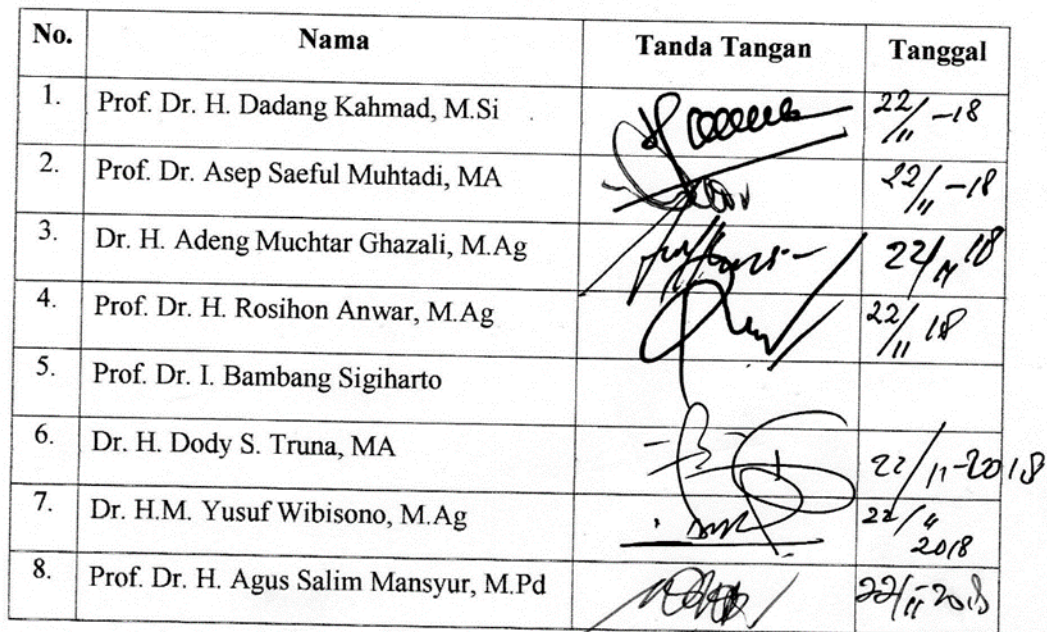 No. Nama Tanda Tangan Tanggal
1. Prof. Dr. H. Dadang Kahmad, M.Si 22/11 -18
2. Prof. Dr. Asep Saeful Muhtadi, MA 22/11 -18
3. Dr. H. Adeng Muchtar Ghazali, M.Ag 22/11 18
4. Prof. Dr. H. Rosihon Anwar, M.Ag 22/11 18
5. Prof. Dr. I. Bambang Sigiharto
6. Dr. H. Dody S. Truna, MA 22/11-2018
7. Dr. H.M. Yusuf Wibisono, M.Ag 22/11 2018
8. Prof. Dr. H. Agus Salim Mansyur, M.Pd 22/11-2018